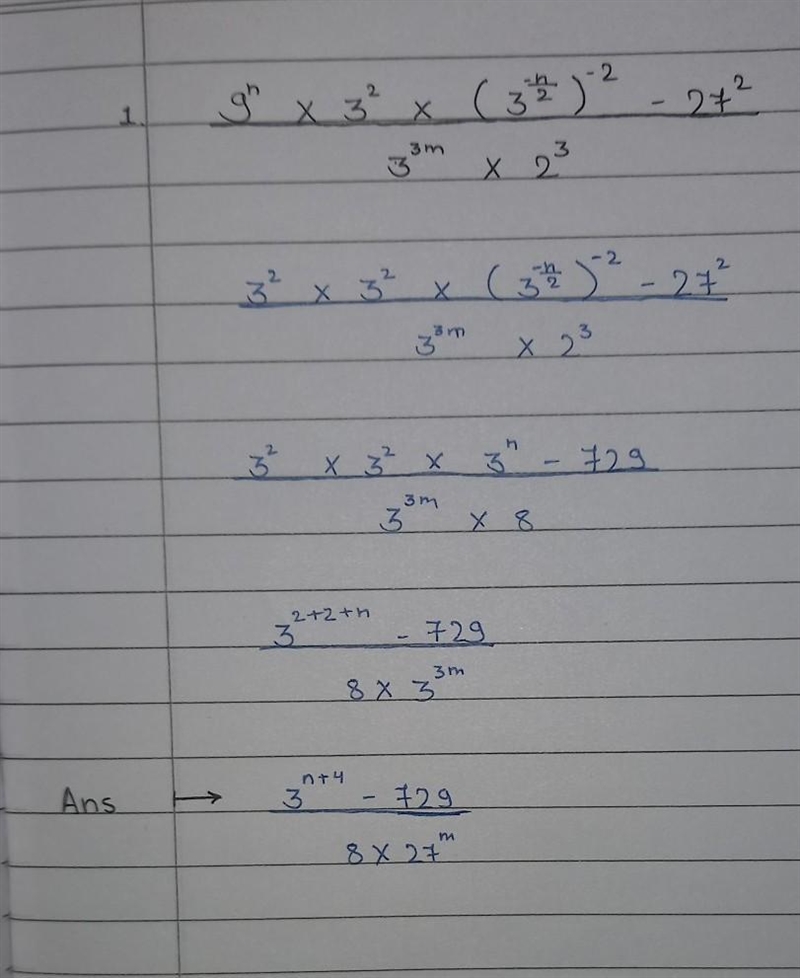 1. 9ⁿ × 3² × (3^(-n/2))^-2 - 27²
3^3m × 2³
3² × 3² × (3^(-n/2))^-2 - 27²
3^3m × 2³
3² × 3² × 3ⁿ - 729
3^3m × 8
3^2+2+n - 729
8 × 3^3m
Ans ↦ 3^n+4 - 729
8 × 27^m